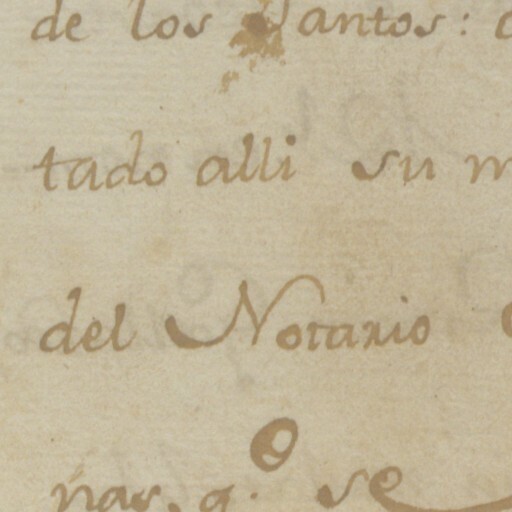 de los Santos:
tado alli su
del Notario
nar, q.e se